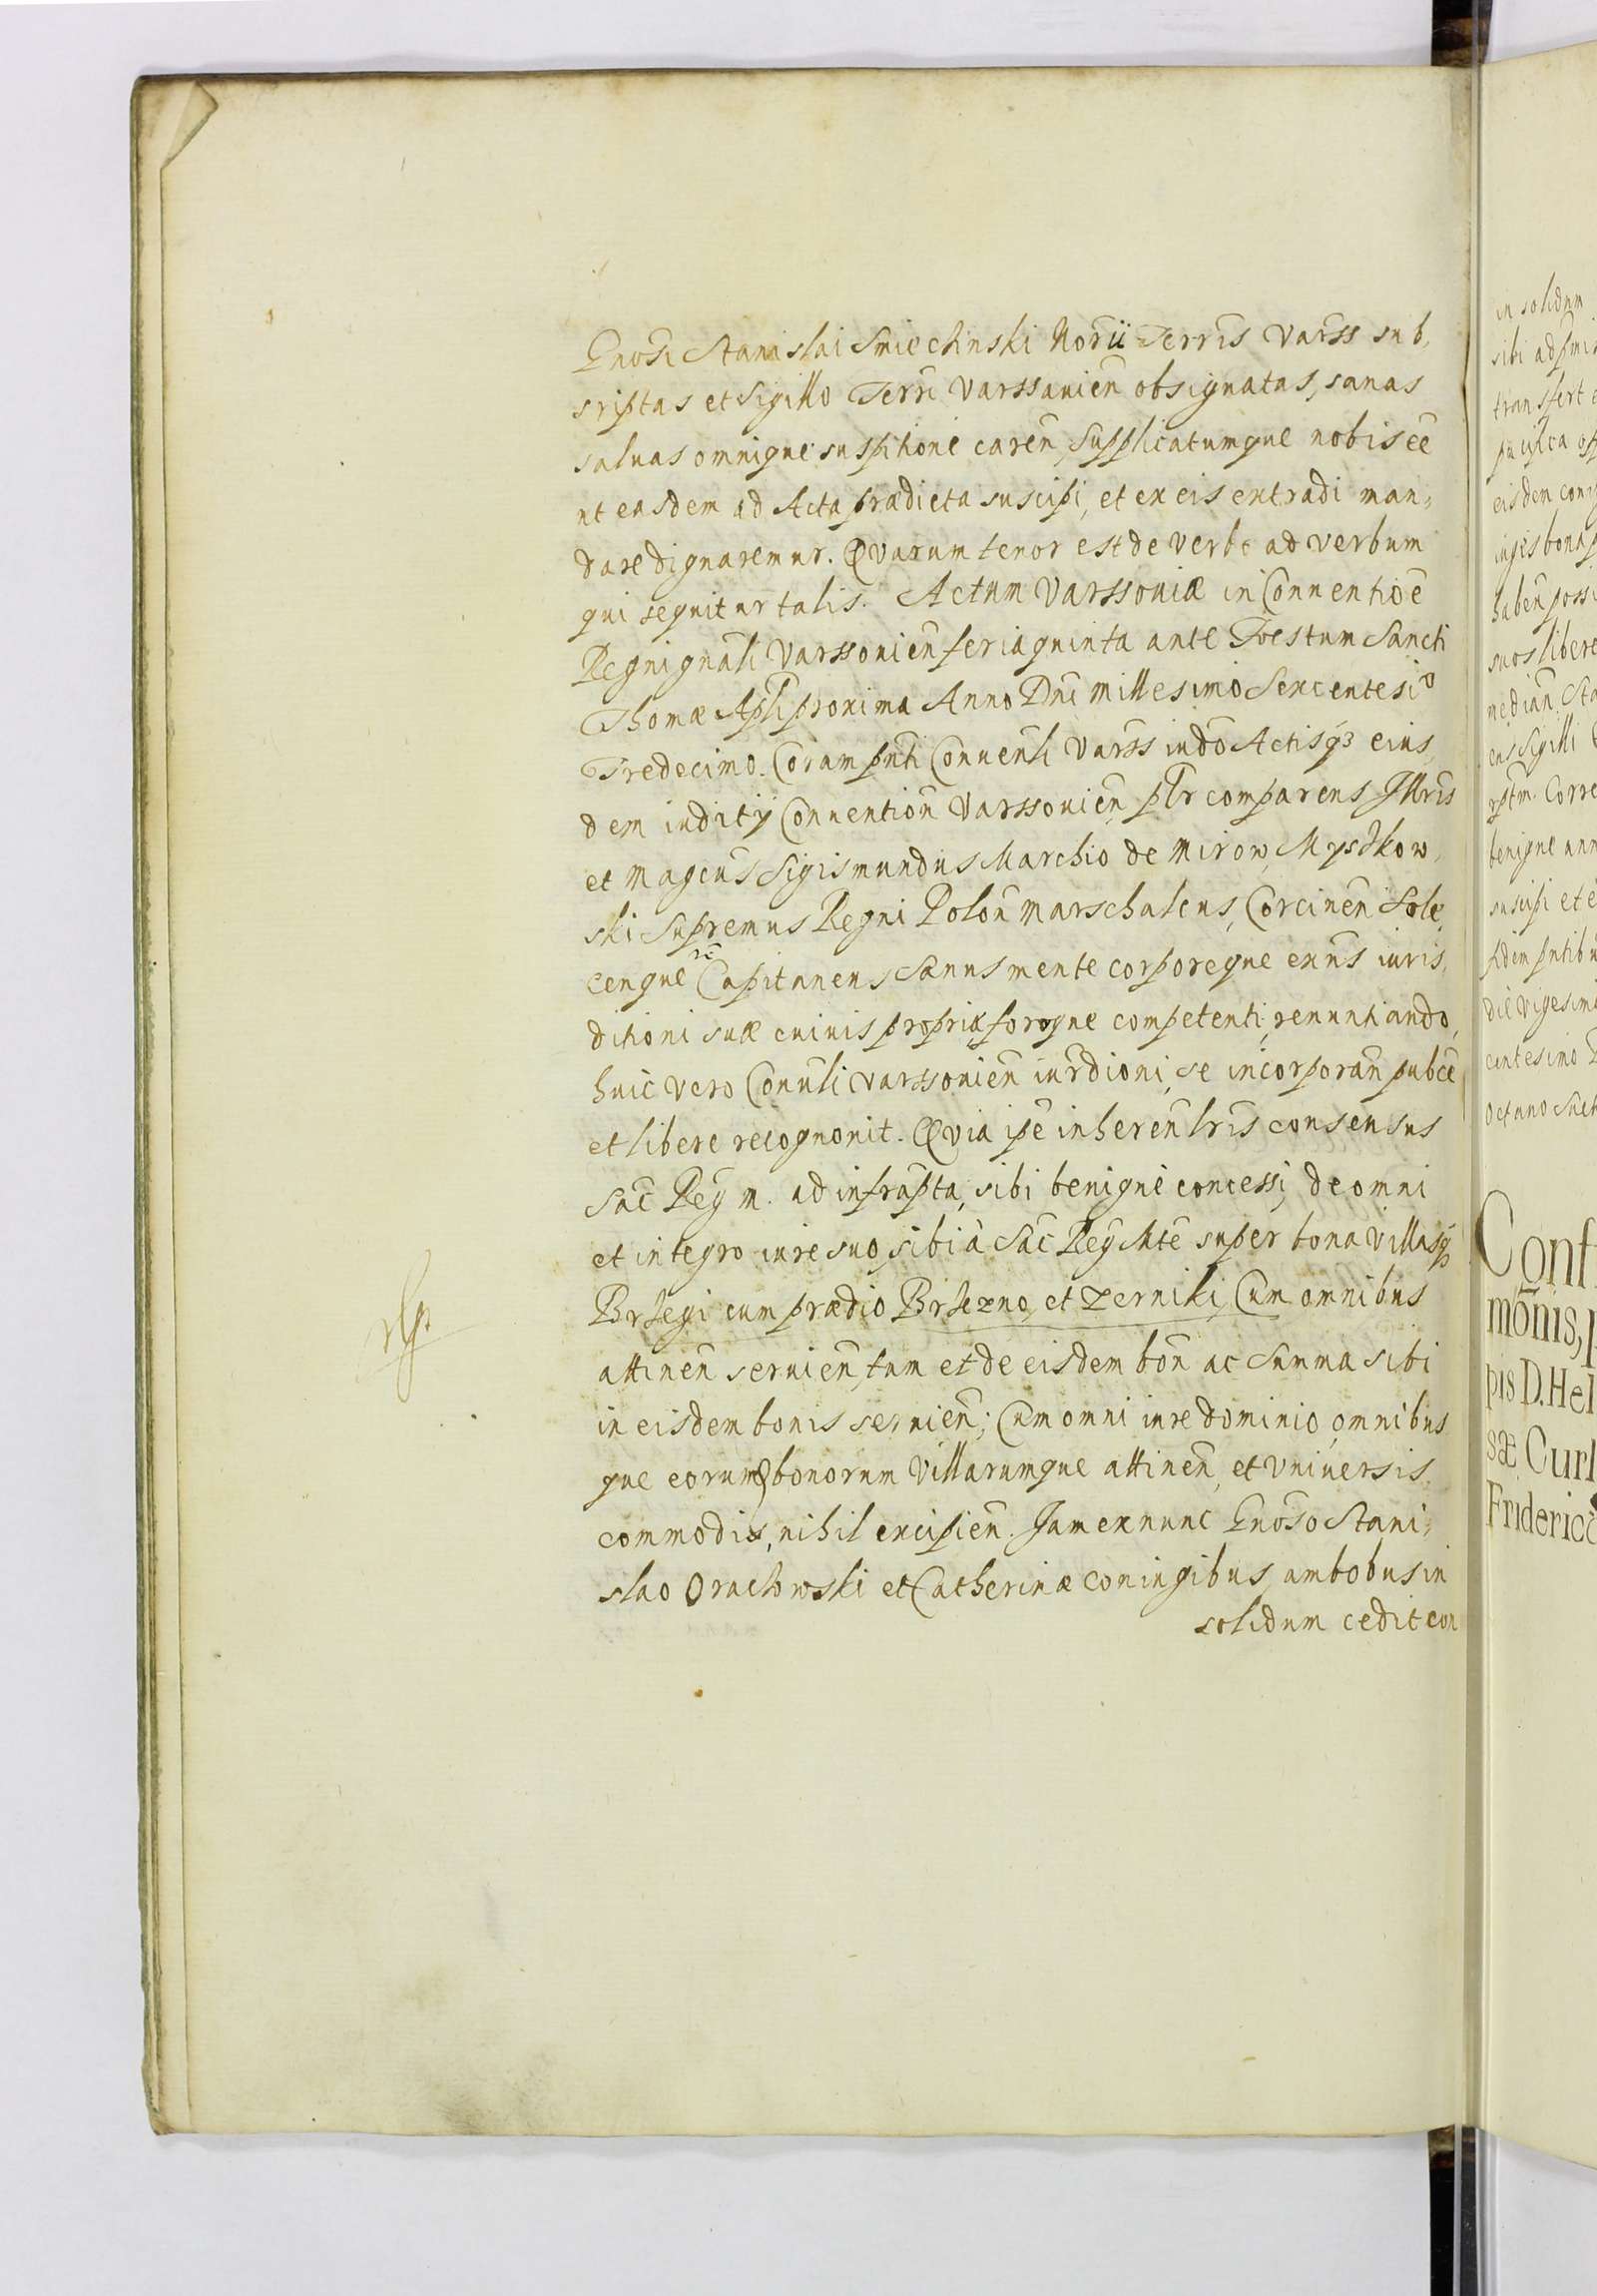 Gnosi Stanislai Smiechinski Norii Terris Varss sub,
sriptas et Sigillo Terri Varssauien obsignatas, sanas
saluas omnique suspitione caren, Supplicatumque nobis ee
ut easdem ad Acta prædicta suscipi, et ex eis extradi man,
dare dignaremur. Qvarum tenor est de verbo ad verbum
qui sequitur talis. Actum Varssouiæ in Conuentioe
Regni gnali Varssouien feria quinta ante Foestum Sancti
Thomæ Apli proxima Anno Dni Millesimo Sexcentesio
Tredecimo. Coram pnti Conuenli Varss iudo Actisq3 eius,
dem iudicij Conuention Varssouien plr comparens Illris
et Magcus Sigismundus Marchio de Mirow, Myszkow,
ski Supremus Regni Polon Marschalcus, Corcinen Sole,
cenque rc Capitaneus Sanus mente corporeque exns iuris,
ditioni suæ cuiuis propriæ foroque competenti renuntiando,
huic vero Conunli Varssouien iurdioni se incorporan pubce
et libere recognouit. Qvia ipe inheren lris consensus
Sac Reg M. ad infrapta, sibi benigne concessi, de omni
et integro iure suo sibi à Sac Reg Mte super bona Villasq3
Brzegi cum prædio Brzezno, et Zerniki, Cum omnibus
attinen seruien, tum et de eisdem bon ac Summa sibi
in eisdem bonis seruien; Cum omni iure dominio omnibus
que eorum bonorum Villarumque attinen, et Vniuersis
commodis, nihil excipien. Jam ex nunc Gnoso Stani,
slao Orachowski et Catherinæ coniugibus ambobus in
solidum cedit con
in solidum
transfert
eisdem coni
haben possi
suos libere
benigne ann
suscipi et e
die Vigesimo
centesimo
Octauo
Conf
monis, p
pis D. Hel
sæ Curl
Frideric